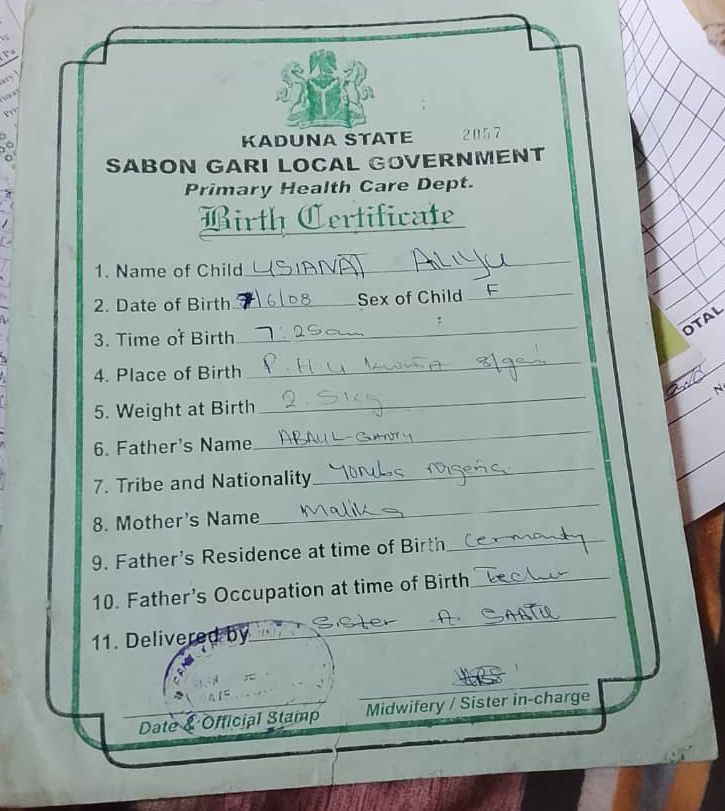 KADUNA STATE 2057
SABON GARI LOCAL GOVERNMENT
Primary Health Care Dept.
Birth Certificate
1. Name of Child USIANAT ALIYU
2. Date of Birth 7/6/08 Sex of Child F
3. Time of Birth 7:25am
4. Place of Birth P.H.U S/gari
5. Weight at Birth 2.5kg
6. Father's Name
7. Tribe and Nationality Yoruba Nigeria
8. Mother's Name Malika
9. Father's Residence at time of Birth
10. Father's Occupation at time of Birth Techer
11. Delivered by Sister A. SABTU
Date & Official Stamp
Midwifery / Sister in-charge
OTAL